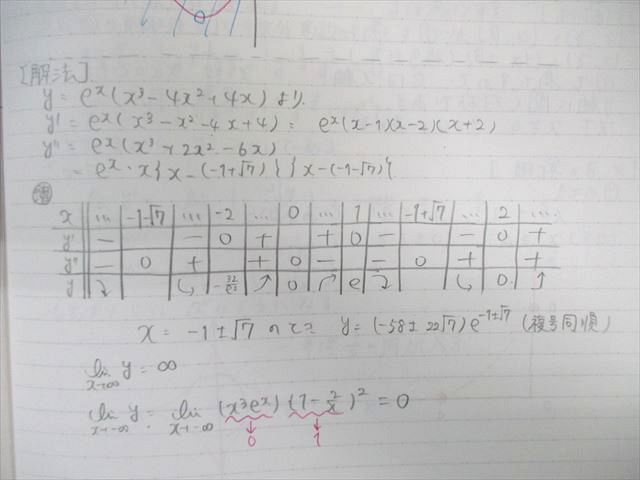 [解法]
y = e^x(x³-4x²+4x) より.
y' = e^x(x³-x²-4x+4) = e^x(x-1)(x-2)(x+2)
y'' = e^x(x³+2x²-6x)
= e^x・x{x-(-1+√7)}{x-(-1-√7)}
x … -1-√7 … -2 … 0 … 1 … -1+√7 … 2 …
y' - - 0 + + 0 - - 0 +
y'' - 0 + + 0 - - 0 + +
y ⤵ ⤷ -32/e² ⤴ 0 ↱ e ⤵ ⤷ 0 ⤴
x = -1±√7 のとき y=(-58±22√7)e^{-1±√7} (複号同順)
lim x→∞ y = ∞
lim x→-∞ y = lim x→-∞ (x³e^x)(1-2/x)² = 0
↓ ↓
0 1